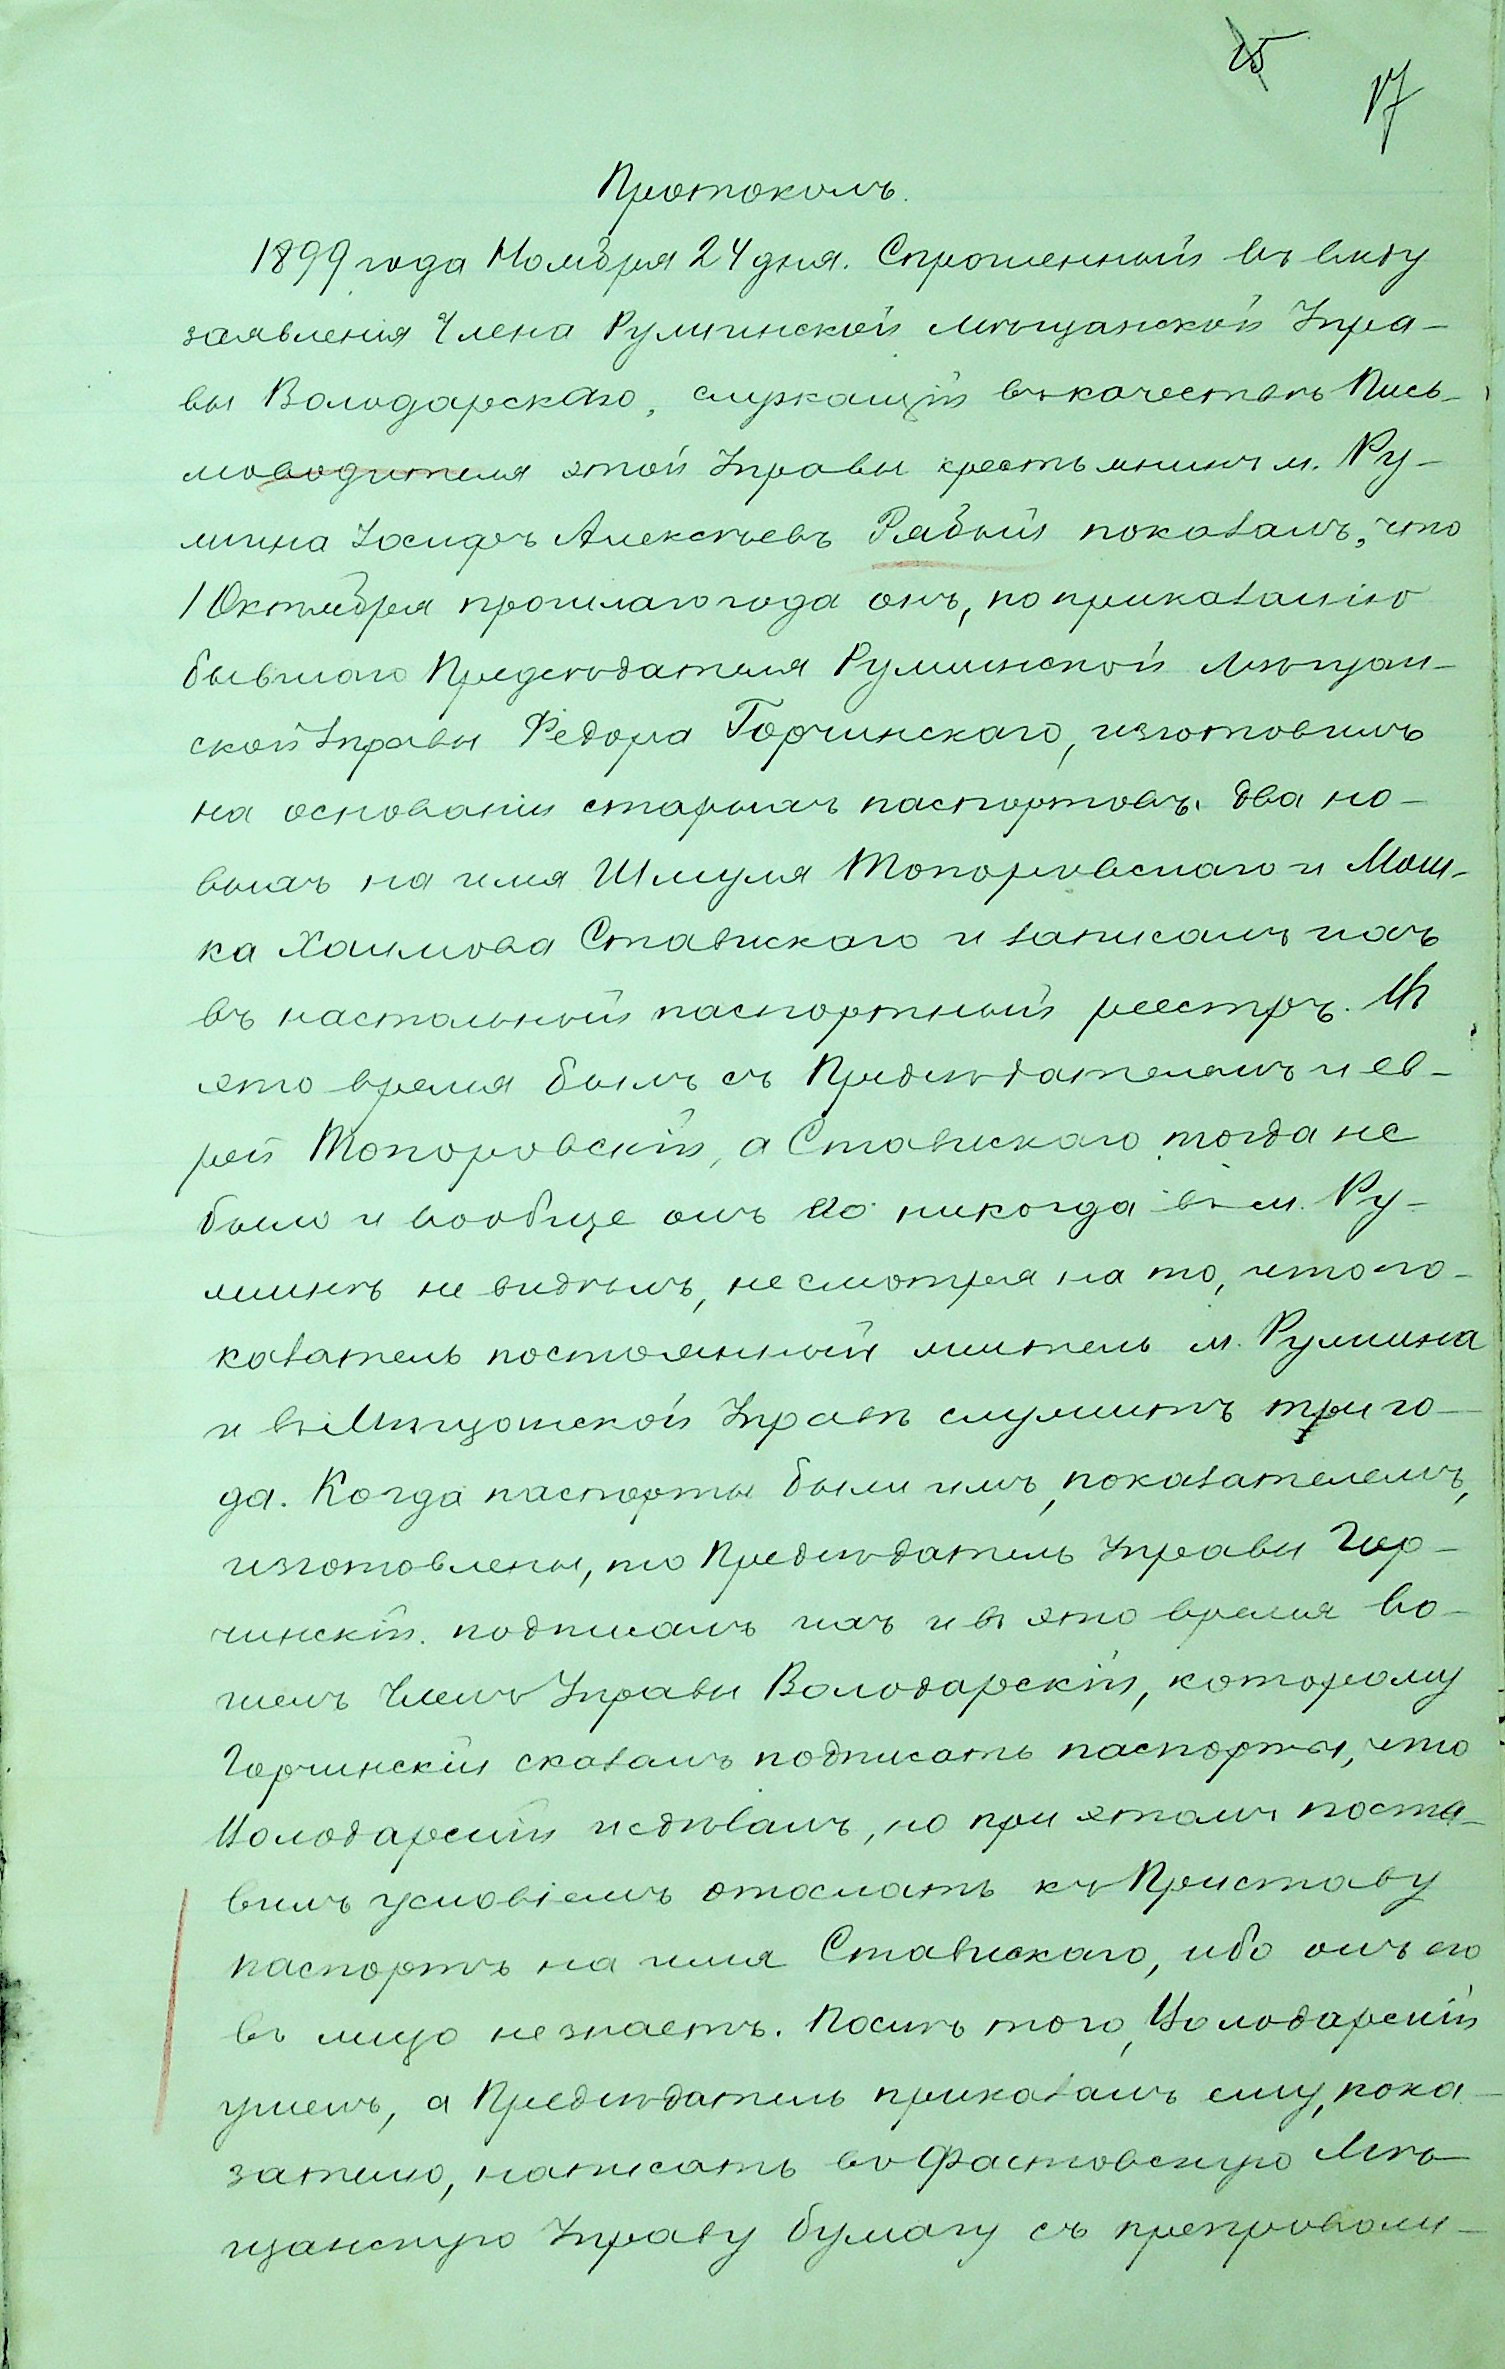 25
17
Протоколъ.
1899 года Ноября 24 дня. Спрошенный въ виду
заявленія Члена Ружинской мѣщанской Упра-
вы Володарскаго, служащій въ качествѣ Пись-
моводителя этой Управы крестьянинъ м. Ру-
жина Іосифъ Алексѣевъ Рябый показалъ, что
1 Октября прошлаго года онъ, по приказанію
бывшаго Предсѣдателя Ружинской Мѣщан-
ской Управы Федора Горчинскаго, изготовилъ
на основаніи старыхъ паспортовъ два но-
выхъ на имя Шмуля Топоровскаго и Мош-
ка Хаимова Ставискаго и записалъ ихъ
въ настольный паспортный реестръ. Въ
это время былъ съ Предсѣдателемъ и ев-
рей Топоровскій, а Ставискаго тогда не
было и вообще онъ его никогда въ м. Ру-
жинѣ не видѣлъ, не смотря на то, что по-
казатель постоянный житель м. Ружина
и въ Мѣщанской Управѣ служитъ три го-
да. Когда паспорты были имъ, показателемъ,
изготовлены, то Предсѣдатель Управы Гор-
чинскій подписалъ ихъ и въ это время во-
шелъ Членъ Управы Володарскій, которому
Горчинскій сказалъ подписать паспорты, что
Володарскій и сдѣлалъ, но при этомъ поста-
вилъ условіемъ отослать къ Приставу
паспортъ на имя Ставискаго, ибо онъ его
въ лицо не знаетъ. Послѣ того, Володарскій
ушелъ, а Предсѣдатель приказалъ ему, пока-
зателю, написать въ Фастовскую Мѣ-
щанскую Управу бумагу съ препровожи-